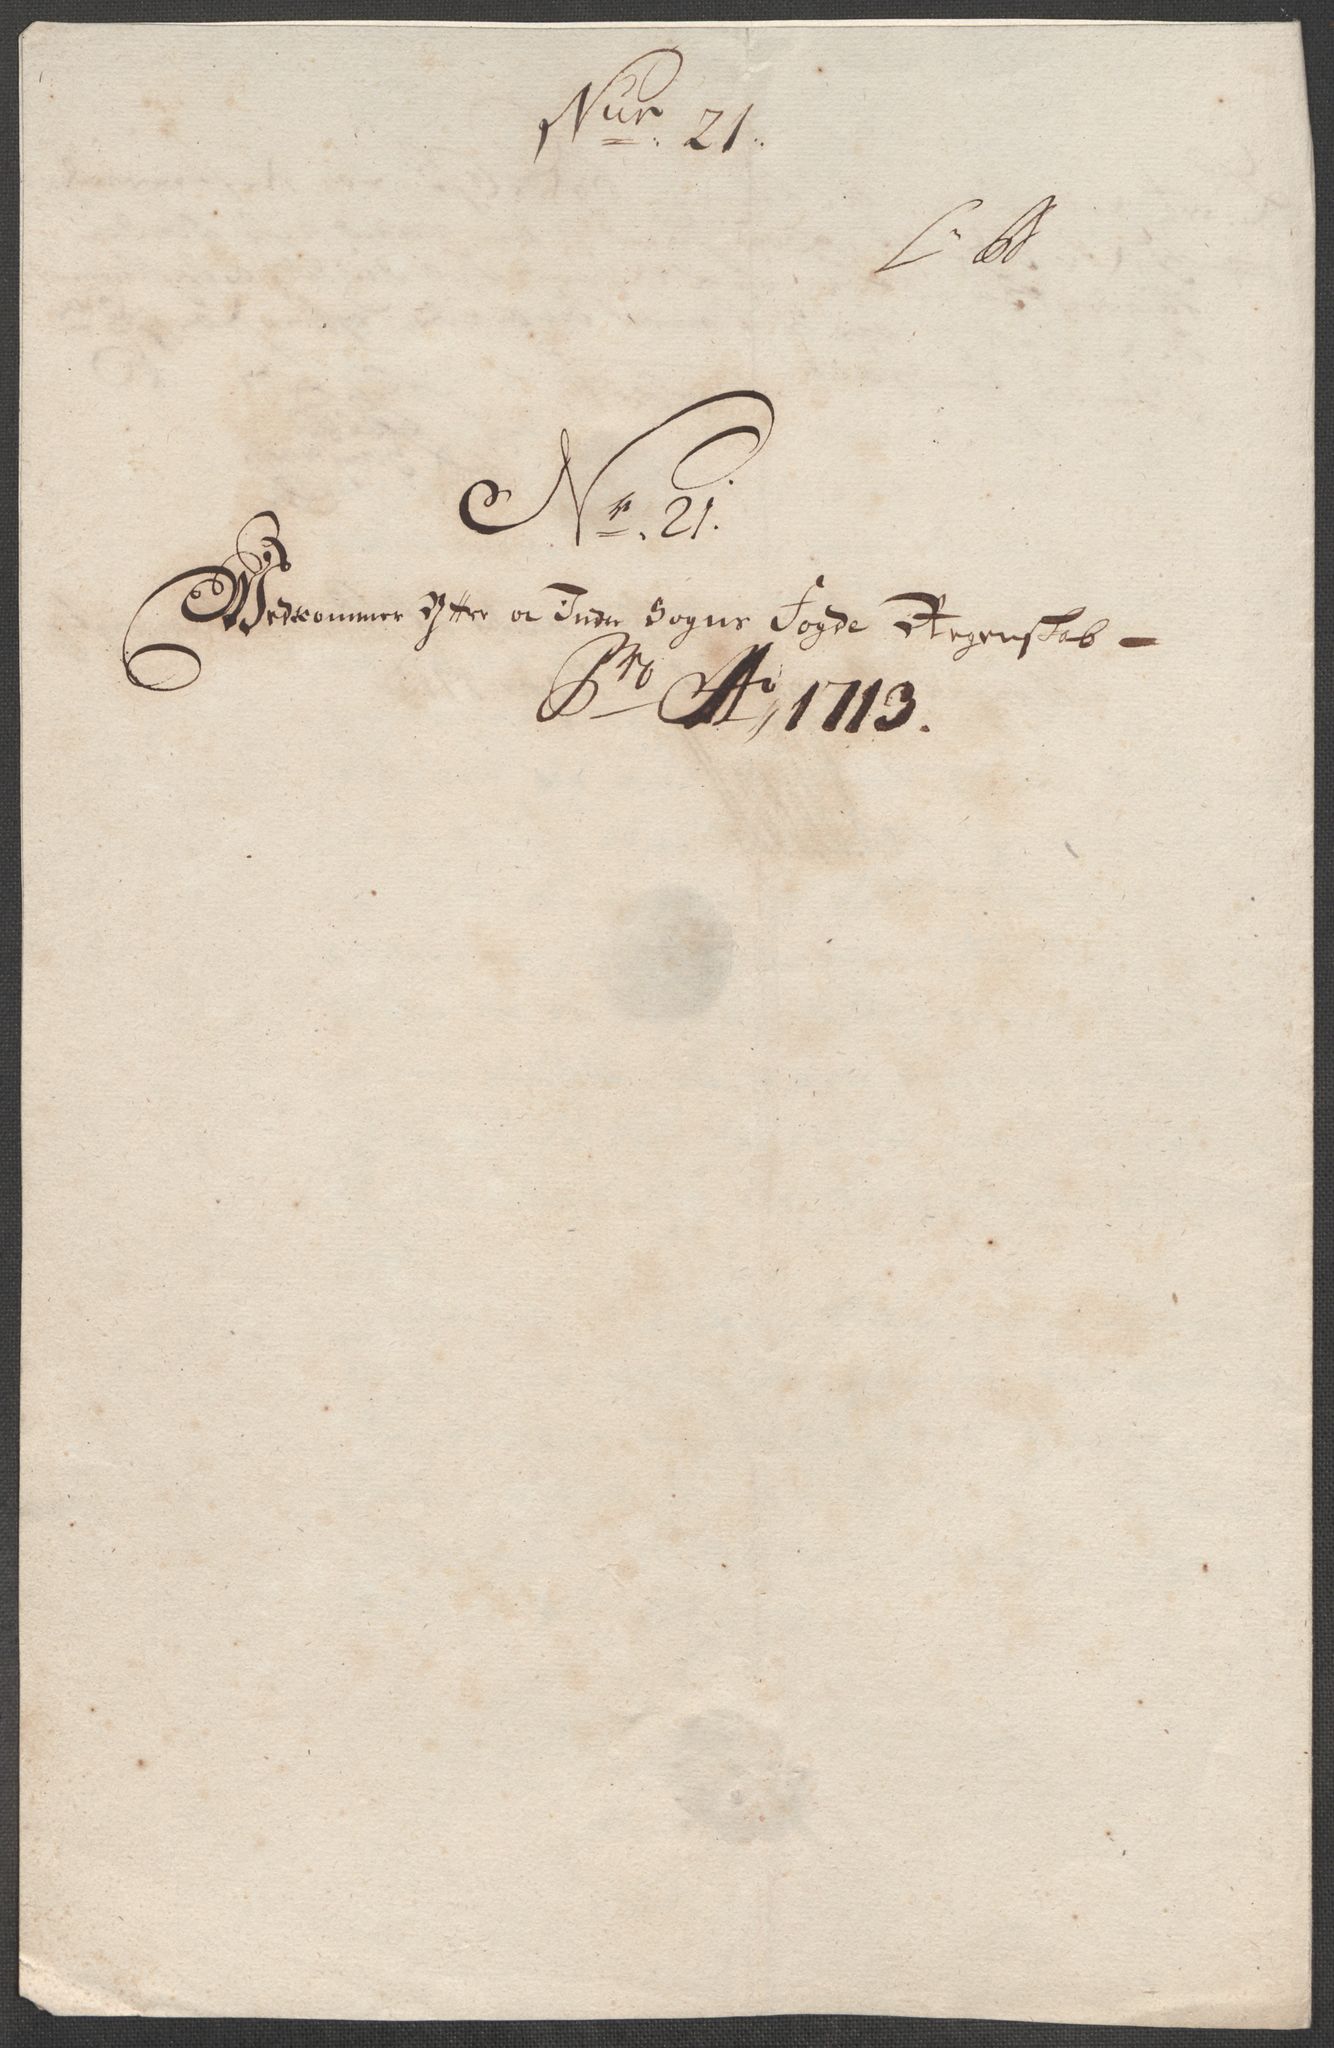 Nur. 21.
No. 21.
Vedkommer Ytter oc Inder Sogns Fogde Regenskab –
Pro Ao 1713.